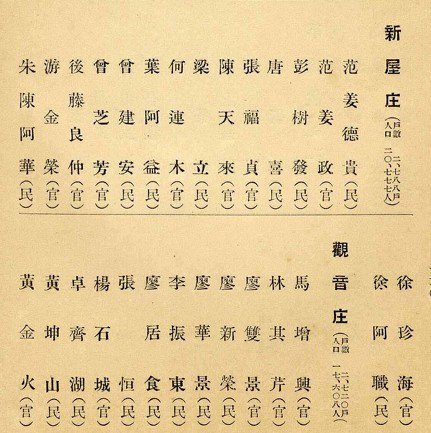 新屋庄（戶數 二、七八八戶 人口 二〇、七七七人）
范姜德貴（民）
范姜政（官）
彭樹發（民）
唐喜（官）
張福貞（官）
陳天來（官）
梁立（民）
何連木（官）
葉阿益（民）
曾建安（民）
曾芝芳（官）
後藤良仲（官）
游金榮（官）
朱陳阿華（民）
徐珍海（官）
徐阿職（民）
觀音庄（戶數 二、七二〇戶 人口 一七、六〇八人）
馬增興（官）
林其芹（官）
廖雙景（官）
廖新榮（民）
廖華景（民）
李振東（民）
廖居食（民）
張恒（官）
楊石城（官）
卓齊湖（民）
黃坤山（民）
黃金火（官）